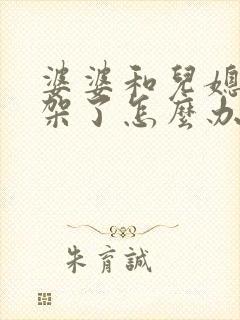 婆婆和兒媳
架了怎麼办
朱育誠